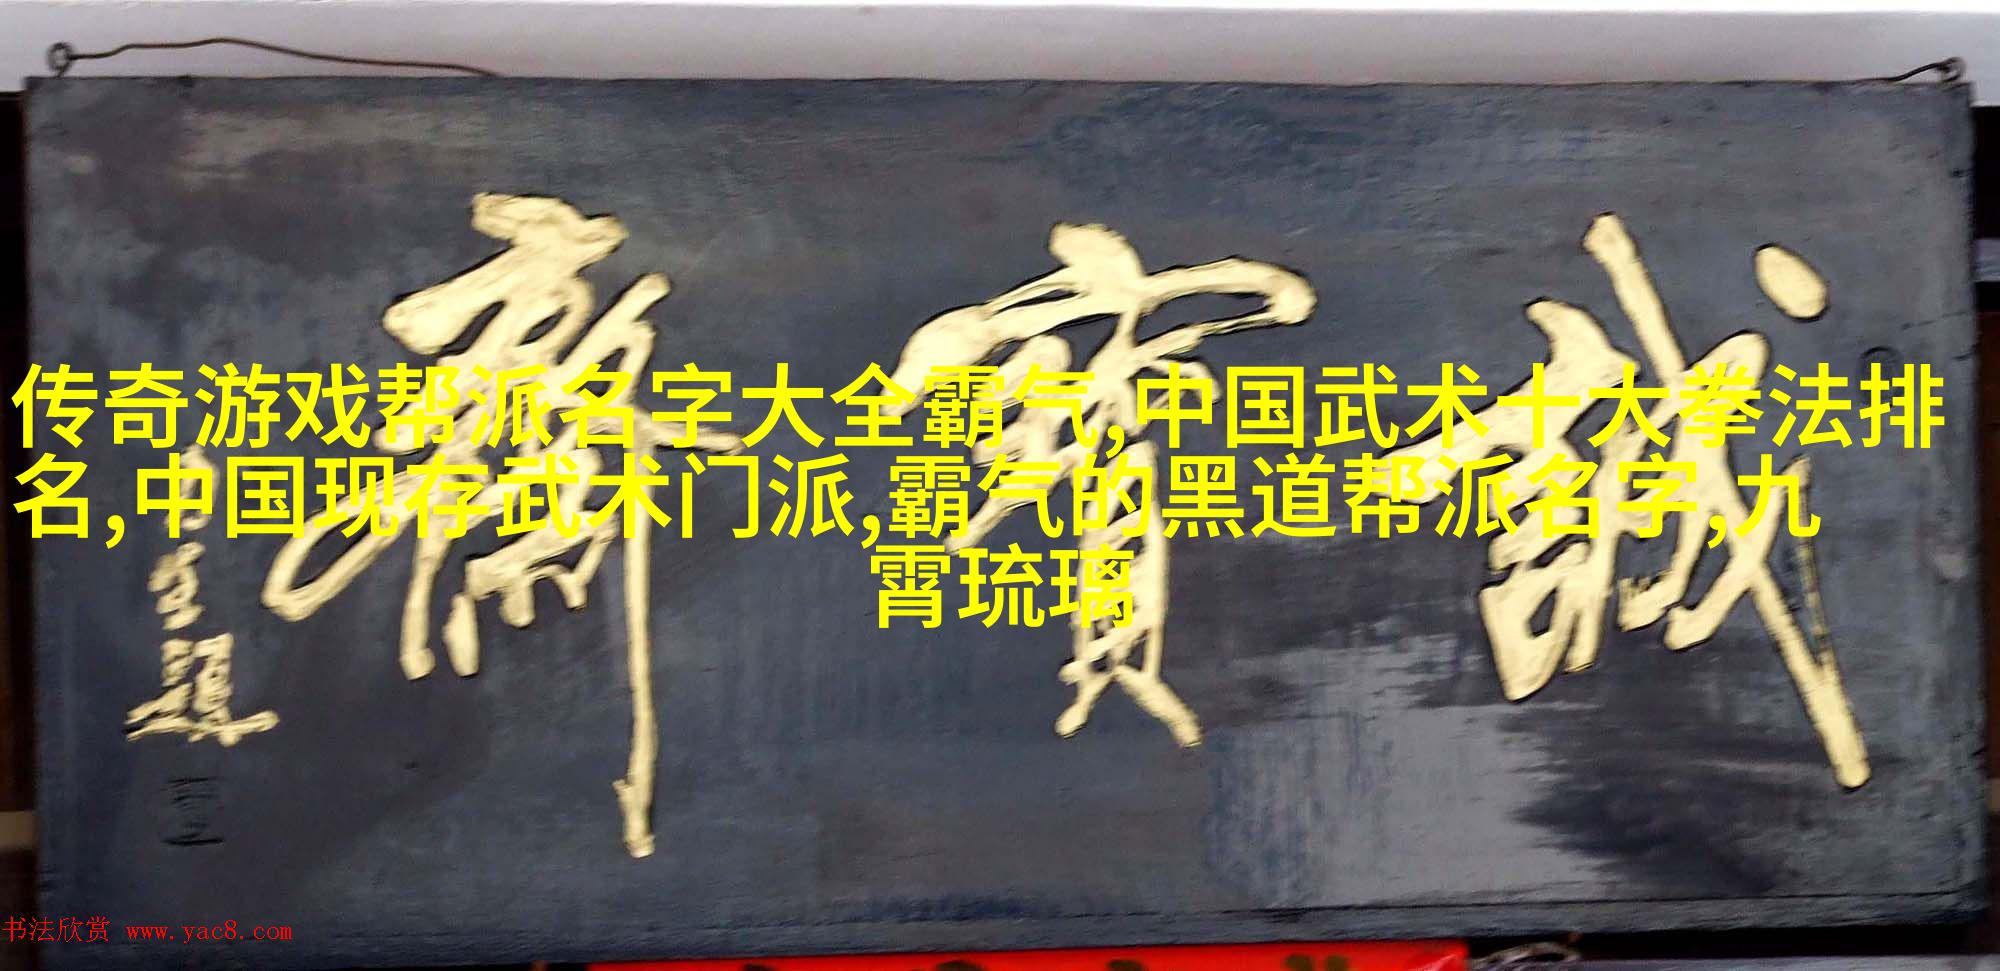 传奇游戏帮派名字大全霸气,中国武术十大拳法排
名,中国现存武术门派,霸气的黑道帮派名字,九
霄琉璃
誠寶齋
书法欣赏 www.yac8.com